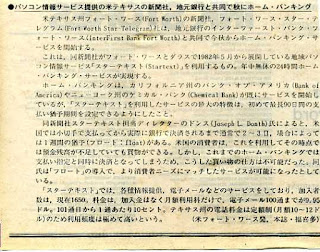 ●パソコン情報サービス提供の米テキサスの新聞社、地元銀行と共同で秋にホーム・バンキング
米テキサス州フォート・ワース(Fort Worth)の新聞社、フォート・ワース・スター・テレグラム(Fort Worth Star Telegram)は、地元銀行のインターファースト・バンク・フォート・ワース(InterFirst Bank Fort Worth)と共同で今秋からホーム・バンキング・サービスを開始する。
これは、同新聞社がテレグラムと共同で1982年5月から展開している地域パソコン情報サービス「スターテキスト」(Startext)を利用するもの。年中無休の24時間ホーム・バンキング・サービスが実現する。
ホーム・バンキングは、カリフォルニア州のバンク・オブ・アメリカ(Bank of America)やニューヨーク州のケミカル・バンク(Chemical Bank)が既にサービスを開始しているが、「スターテキスト」を利用したサービスの最大の特徴は、初めて最長90日間の支払い猶予期間を設定できるようにしたこと。
同新聞社スターテキスト担当ディレクターのドンス(Joseph L. Donth)氏によると、米国では小切手で支払ってから実際に銀行で決済されるまで通常で2〜3日、場合によっては1週間の猶予(フロート：Float)がある。米国の消費者は、これを利用してその時点では預金残高が不足していても買物ができる。しかし、これまでのホーム・バンキングでは支払い指定と同時に決済となってしまうため、こうした買い物の仕方は不可能だった。同氏は「フロート」の導入で、より消費者ニーズにマッチしたサービスが可能になったとしている。
「スターテキスト」では、各種情報提供、電子メールなどのサービスをしており、加入者数は、現在1650。料金は、加入金はなく月額利用料だけで、電子メール100通までが9.95ドル。101通目から1通あたり10セント。テキサス州の電話料金は定額制(月額10〜12ドル)のため利用頻度は極めて高いという。
(米フォート・ワース発、本誌・福喜多)